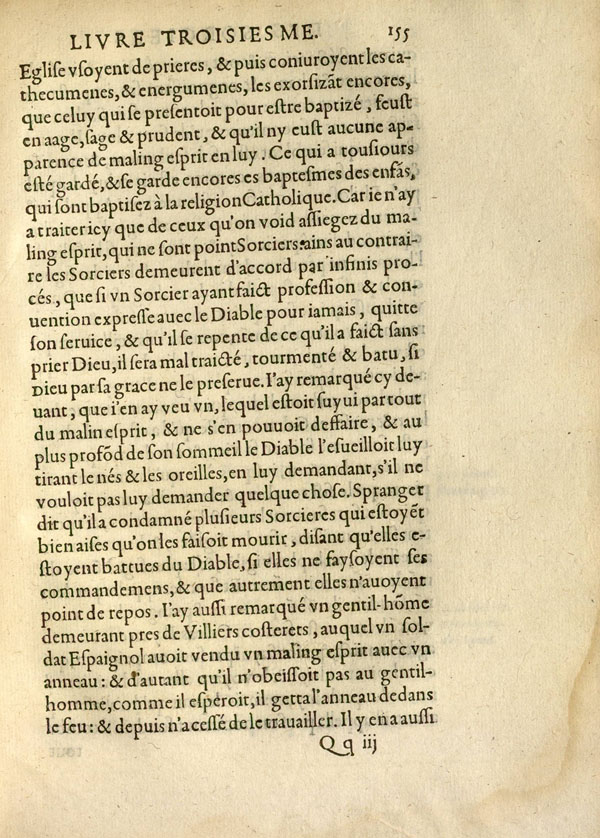 LIVRE TROISIESME. 155
Eglise vsoyent de prieres, & puis coniuroyent les ca-
thecumenes, & energumenes, les exorsizãt encores,
que celuy qui se presentoit pour estre baptizé, feust
en aage, sage & prudent, & qu'il ny eust aucune ap-
parence de maling esprit en luy. Ce qui a tousiours
esté gardé, & se garde encores es baptesmes des enfãs,
qui sont baptisez à la religion Catholique. Car ie n'ay
a traiter icy que de ceux qu'on void assiegez du ma-
ling esprit, qui ne sont point Sorciers: ains au contrai-
re les Sorciers demeurent d'accord par infinis pro-
cés, que si vn Sorcier ayant faict profession & con-
uention expresse auec le Diable pour iamais, quitte
son seruice, & qu'il se repente de ce qu'il a faict sans
prier Dieu, il sera mal traicté, tourmenté & batu, si
Dieu par sa grace ne le preserue. I'ay remarqué cy de-
uant, que i'en ay veu vn, lequel estoit suyui par tout
du malin esprit, & ne s'en pouuoit deffaire, & au
plus profõd de son sommeil le Diable l'esueilloit luy
tirant le nés & les oreilles, en luy demandant, s'il ne
vouloit pas luy demander quelque chose. Spranger
dit qu'il a condamné plusieurs Sorcieres qui estoyẽt
bien aises qu'on les faisoit mourir, disant qu'elles e-
stoyent battues du Diable, si elles ne faysoyent ses
commandemens, & que autrement elles n'auoyent
point de repos. I'ay aussi remarqué vn gentil-hõme
demeurant pres de Villiers costerets, auquel vn sol-
dat Espaignol auoit vendu vn maling esprit auec vn
anneau: & d'autant qu'il n'obeissoit pas au gentil-
homme, comme il esperoit, il getta l'anneau dedans
le feu: & depuis n'a cessé de le trauailler. Il y en a aussi
Qq iij